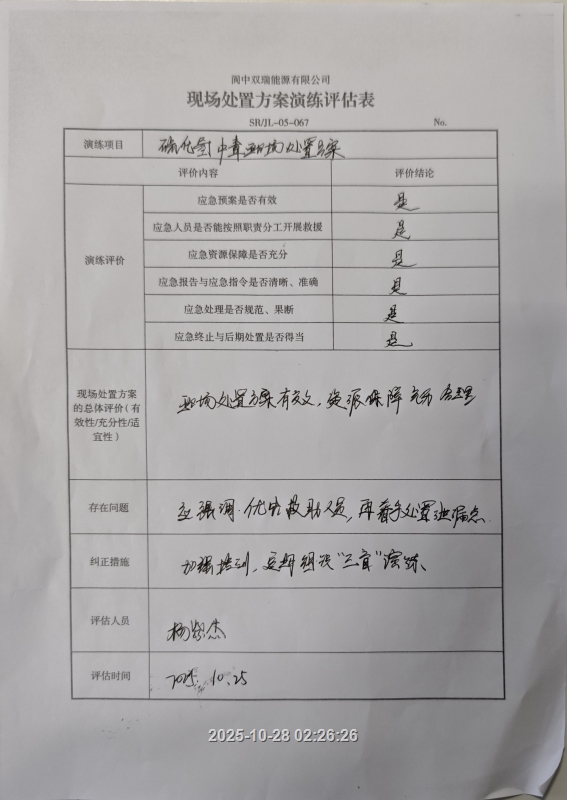 阆中双瑞能源有限公司
现场处置方案演练评估表
SR/JL-05-067 No.
演练项目 硫化氢中毒现场处置方案
评价内容 评价结论
演练评价
应急预案是否有效 是
应急人员是否能按照职责分工开展救援 是
应急资源保障是否充分 是
应急报告与应急指令是否清晰、准确 是
应急处理是否规范、果断 是
应急终止与后期处置是否得当 是
现场处置方案
的总体评价（有
效性/充分性/适
宜性）
现场处置方案有效，资源保障充分合理
存在问题 应强调优先救助人员，再着手处置泄漏点
纠正措施 加强培训，定期组织“三盲”演练、
评估人员 杨
评估时间 2025.10.25
2025-10-28 02:26:26